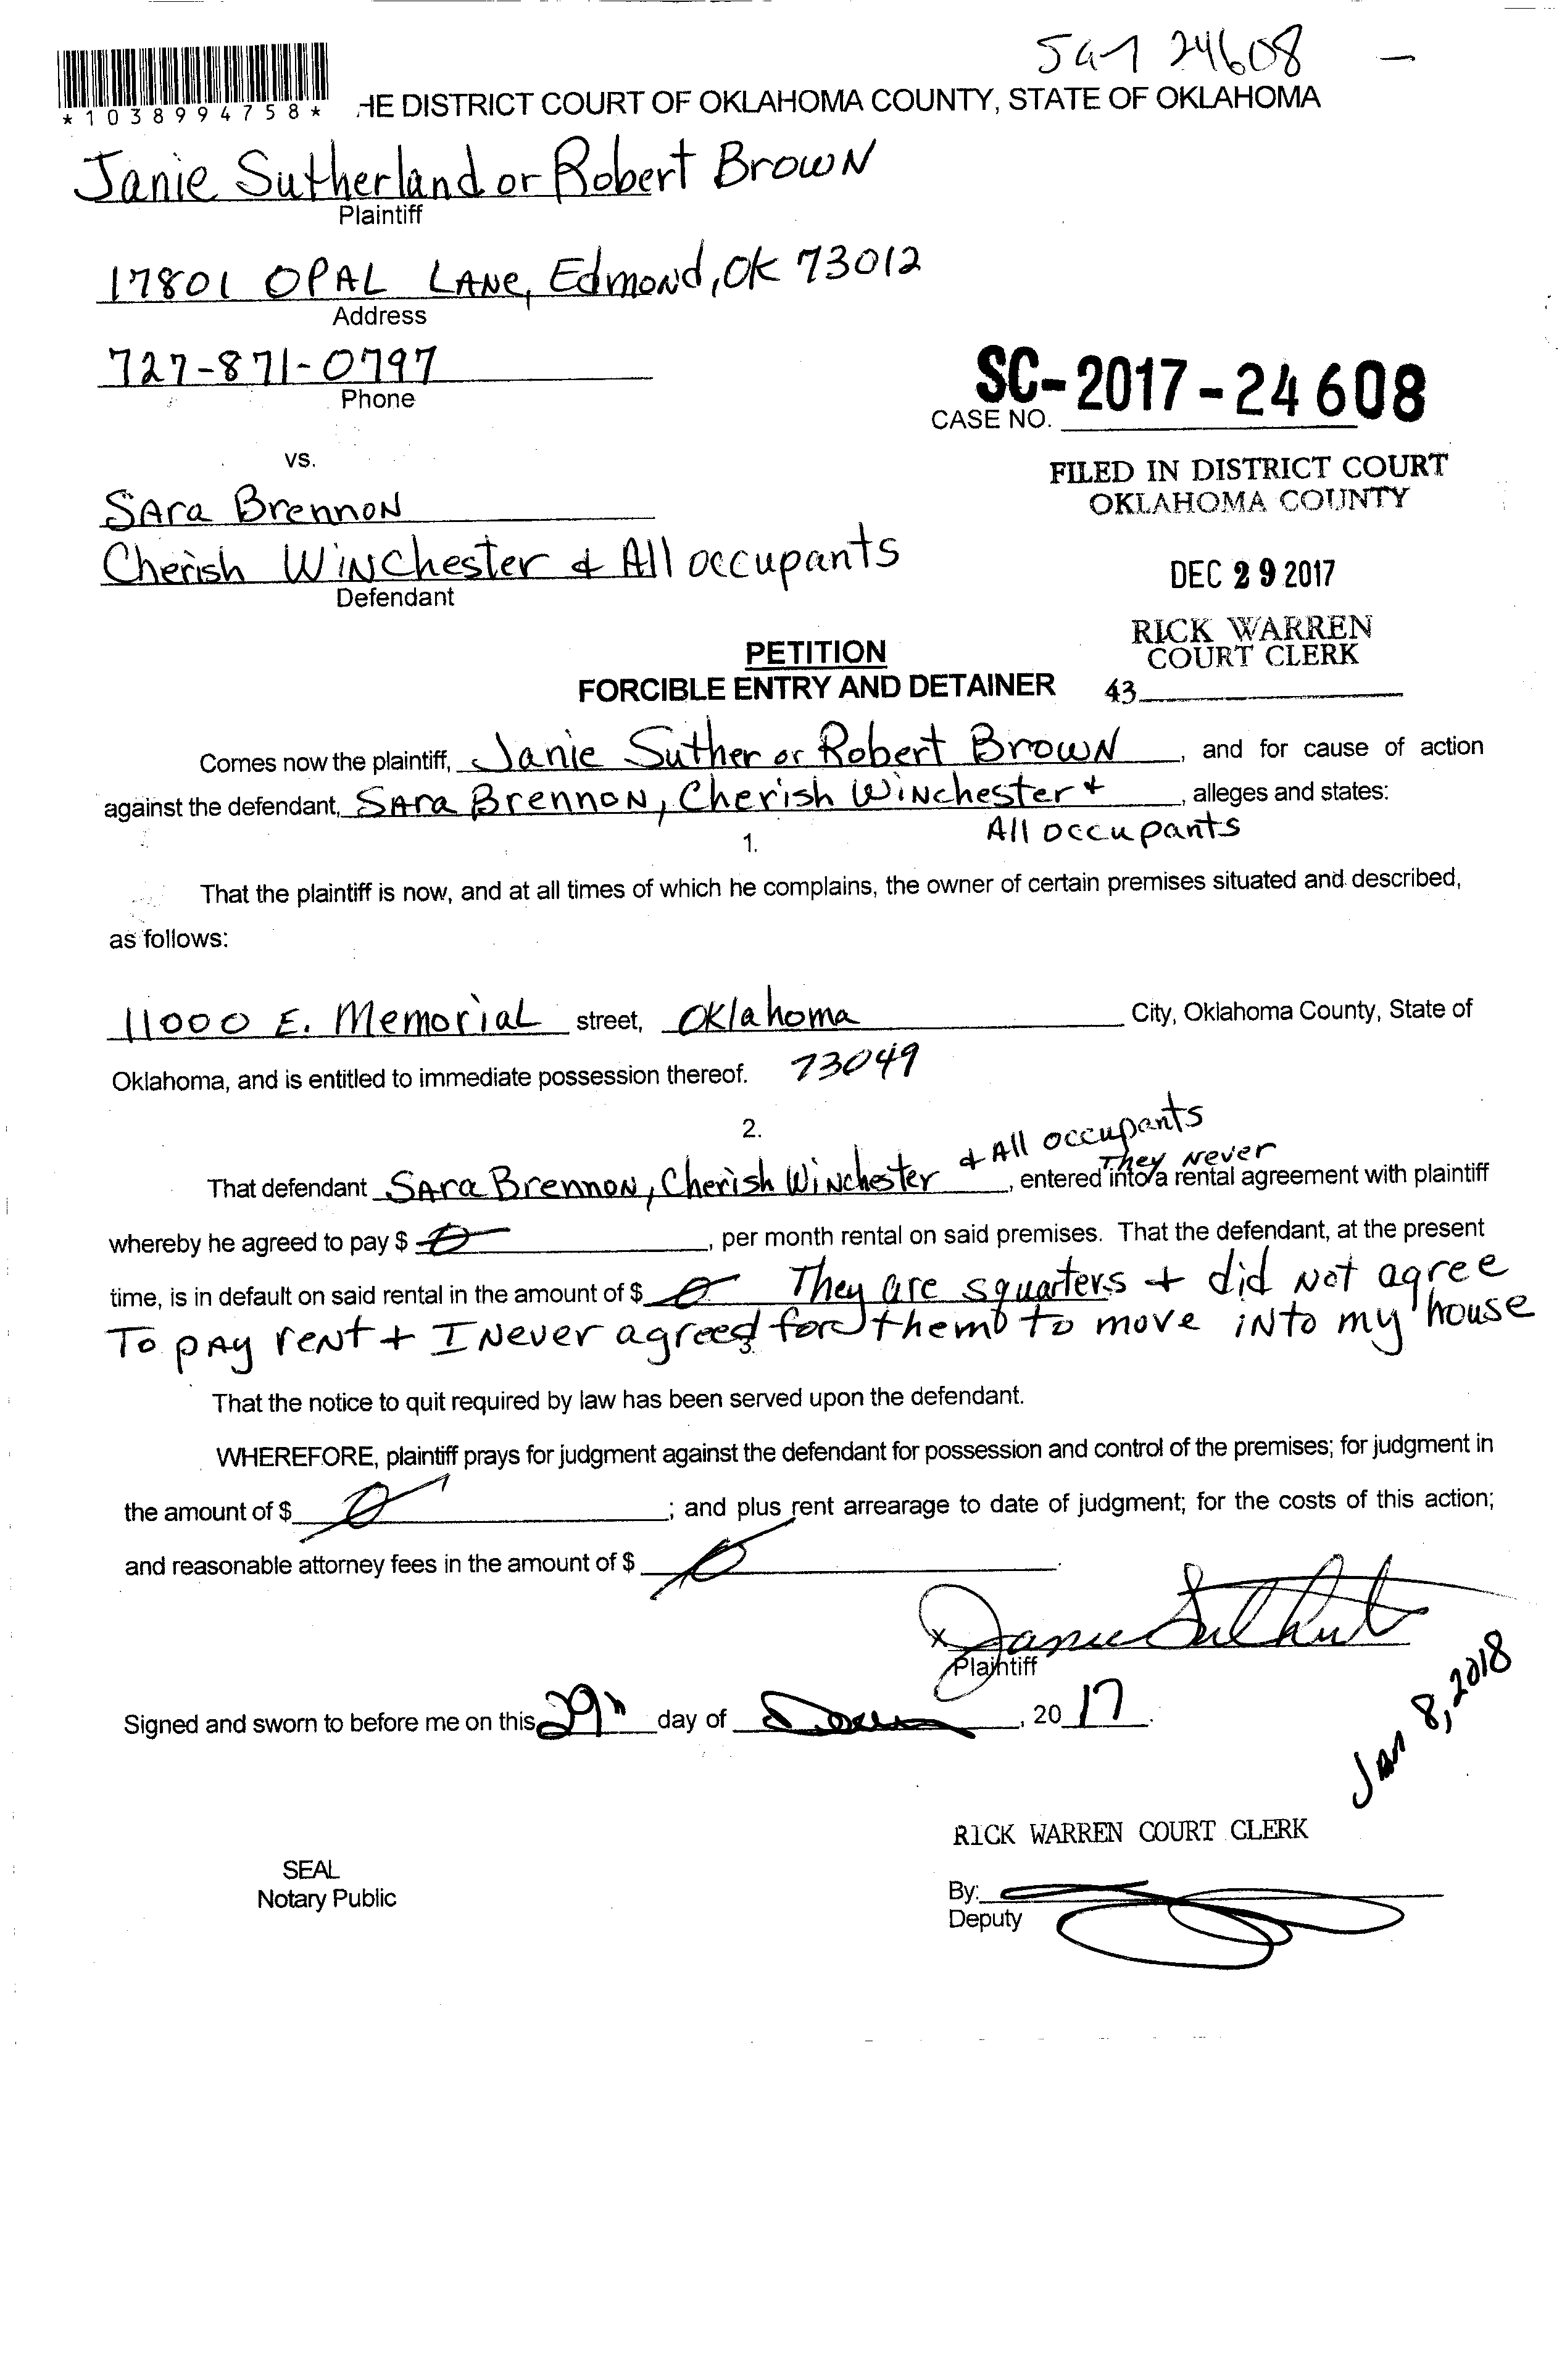 24608
*1038994758*
HE DISTRICT COURT OF OKLAHOMA COUNTY, STATE OF OKLAHOMA
Janie Sutherland or Robert Brown
Plaintiff
17801 OPAL LANe, Edmond, OK 73012
Address
727-871-0797
Phone
SC-2017-24608
CASE NO.
vs.
FILED IN DISTRICT COURT
OKLAHOMA COUNTY
SAra Brennon
Cherish Winchester & All occupants
Defendant
DEC 29 2017
RICK WARREN
COURT CLERK
43
PETITION
FORCIBLE ENTRY AND DETAINER
Comes now the plaintiff, Janie Suther or Robert Brown, and for cause of action
against the defendant, SAra Brennon, Cherish Winchester +, alleges and states:
All occupants
1.
That the plaintiff is now, and at all times of which he complains, the owner of certain premises situated and described,
as follows:
11000 E. Memorial street, Oklahoma City, Oklahoma County, State of
Oklahoma, and is entitled to immediate possession thereof. 73049
2.
& All occupants
They Never
That defendant SAra Brennon, Cherish Winchester, entered into a rental agreement with plaintiff
whereby he agreed to pay $ 0, per month rental on said premises. That the defendant, at the present
time, is in default on said rental in the amount of $ 0 They are squarters + did Not agree
To pAy rent + I Never agreed for them to move iNto my house
3.
That the notice to quit required by law has been served upon the defendant.
WHEREFORE, plaintiff prays for judgment against the defendant for possession and control of the premises; for judgment in
the amount of $ 0; and plus rent arrearage to date of judgment; for the costs of this action;
and reasonable attorney fees in the amount of $ 0.
x Janie Sutherland
Plaintiff
Signed and sworn to before me on this 29th day of, 2017.
Jan 8, 2018
RICK WARREN COURT CLERK
SEAL
Notary Public
By:
Deputy